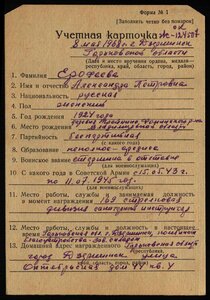 Форма № 1
(Заполнять четко без помарок)
Учетная карточка
8 мая 1968 г. г. Дзержинск
Горьковской области
(Дата и место вручения ордена, медали —
республика, край, область, город, район)
1. Фамилия Ерофеева
2. Имя и отчество Александра Петровна
3. Национальность русская
4. Пол женский
5. Год рождения 1924 года
6. Место рождения
Владимирской области
7. Партийность беспартийная
8. Образование неполное-среднее
9. Воинское звание старшина в отставке
10. С какого года в Советской Армии с 15.05.43 г.
по 11.07.1945 год.
(для военнослужащих)
11. Место службы и занимаемая должность
в момент награждения 169 стрелковая
дивизия санитарный инструктор
(для военнослужащих)
12. Место работы, службы и должность в настоящее
время Горьковская обл. г. Дзержинск,
13. Домашний адрес Горьковская область
город Дзержинск улица
Октябрьская дом кв. 4